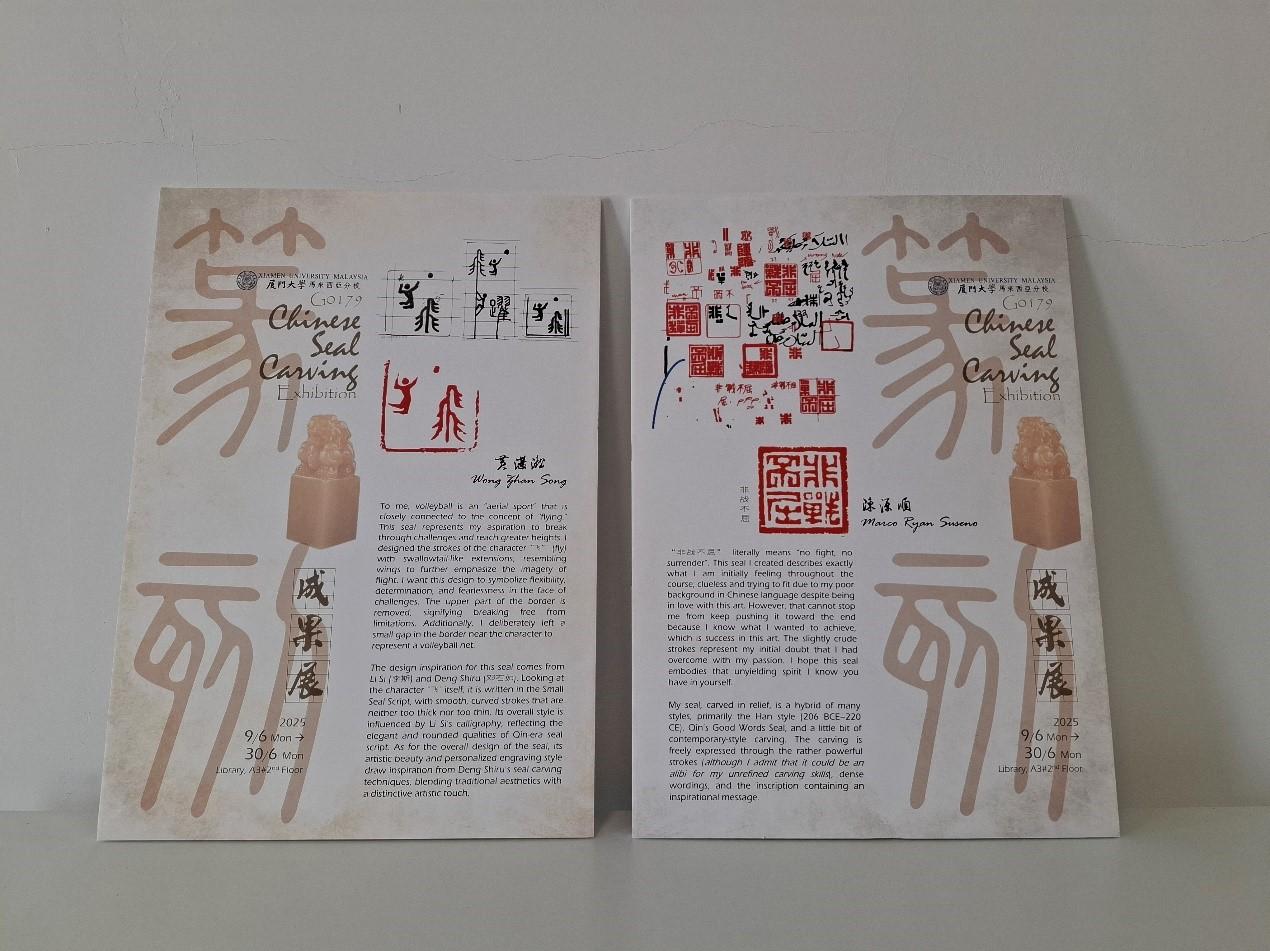 篆刻
XIAMEN UNIVERSITY MALAYSIA
厦門大學 馬來西亞分校
G0179
Chinese
Seal
Carving
Exhibition
成
果
展
2025
9/6 Mon →
30/6 Mon
Library, A3#2nd Floor
Wong Zhan Song
To me, volleyball is an "aerial sport" that is
closely connected to the concept of "flying."
This seal represents my aspiration to break
through challenges and reach greater heights. I
designed the strokes of the character "飞" (fly)
with swallowtail-like extensions, resembling
wings to further emphasize the imagery of
flight. I want this design to symbolize flexibility,
determination, and fearlessness in the face of
challenges. The upper part of the border is
removed, signifying breaking free from
limitations. Additionally, I deliberately left a
small gap in the border near the character to
represent a volleyball net.
The design inspiration for this seal comes from
Li Si (李斯) and Deng Shiru (邓石如). Looking at
the character "飞" itself, it is written in the Small
Seal Script, with smooth, curved strokes that are
neither too thick nor too thin. Its overall style is
influenced by Li Si's calligraphy, reflecting the
elegant and rounded qualities of Qin-era seal
script. As for the overall design of the seal, its
artistic beauty and personalized engraving style
draw inspiration from Deng Shiru's seal carving
techniques, blending traditional aesthetics with
a distinctive artistic touch.
非戰不屈
非战不屈
陳源順
Marco Ryan Suseno
"非战不屈" literally means "no fight, no
surrender". This seal I created describes exactly
what I am initially feeling throughout the
course, clueless and trying to fit due to my poor
background in Chinese language despite being
in love with this art. However, that cannot stop
me from keep pushing it toward the end
because I know what I wanted to achieve,
which is success in this art. The slightly crude
strokes represent my initial doubt that I had
overcome with my passion. I hope this seal
embodies that unyielding spirit I know you
have in yourself.
My seal, carved in relief, is a hybrid of many
styles, primarily the Han style (206 BCE–220
CE), Qin's Good Words Seal, and a little bit of
contemporary-style carving. The carving is
freely expressed through the rather powerful
strokes (although I admit that it could be an
alibi for my unrefined carving skills), dense
wordings, and the inscription containing an
inspirational message.
篆刻
XIAMEN UNIVERSITY MALAYSIA
厦門大學 馬來西亞分校
G0179
Chinese
Seal
Carving
Exhibition
成
果
展
2025
9/6 Mon →
30/6 Mon
Library, A3#2nd Floor